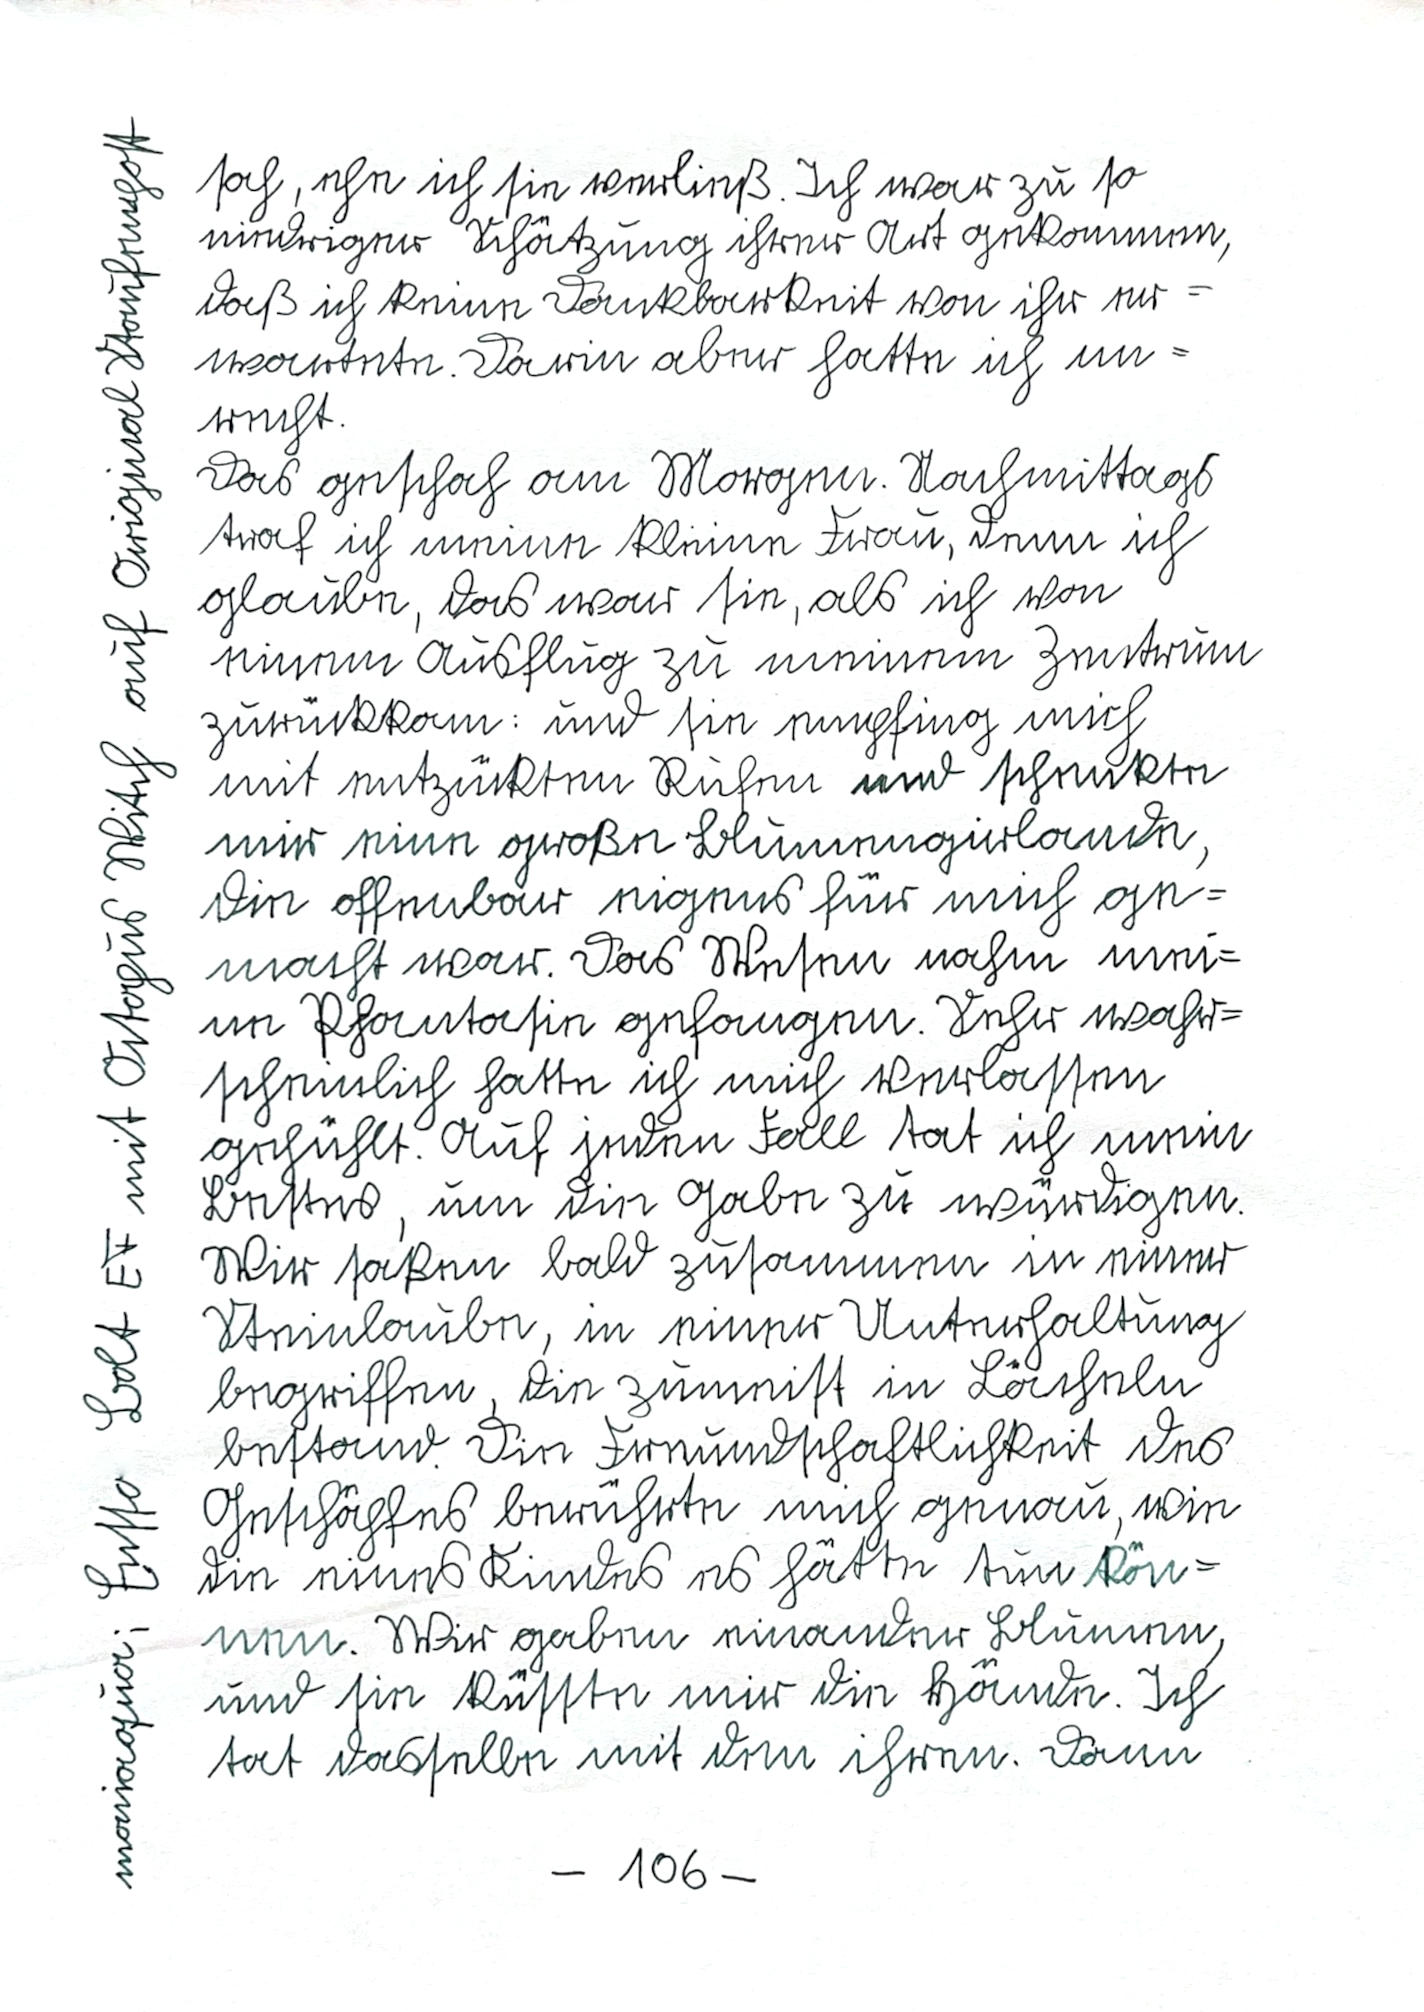 sah, ehe ich sie verließ. Ich war zu so
niedriger Schätzung ihrer Art gekommen,
daß ich keine Dankbarkeit von ihr er=
wartete. Darin aber hatte ich un=
recht.
Das geschah am Morgen. Nachmittags
traf ich meine kleine Frau, denn ich
glaube, das war sie, als ich von
einem Ausflug zu meinem Zentrum
zurückkam: und sie empfing mich
mit entzückten Rufen und schenkte
mir eine große Blumengirlande,
die offenbar eigens für mich ge=
macht war. Das Wesen nahm mei=
ne Phantasie gefangen. Sehr wahr=
scheinlich hatte ich mich verlassen
gefühlt. Auf jeden Fall tat ich mein
Bestes, um die Gabe zu würdigen.
Wir saßen bald zusammen in einer
Steinlaube, in einer Unterhaltung
begriffen, die zumeist in Lächeln
bestand. Die Freundschaftlichkeit des
Geschöpfes berührte mich genau, wie
die eines Kindes es hätte tun kön=
nen. Wir gaben einander Blumen,
und sie küsste mir die Hände. Ich
tat dasselbe mit den ihren. Dann
– 106 –
Bolt EF mit auf Original